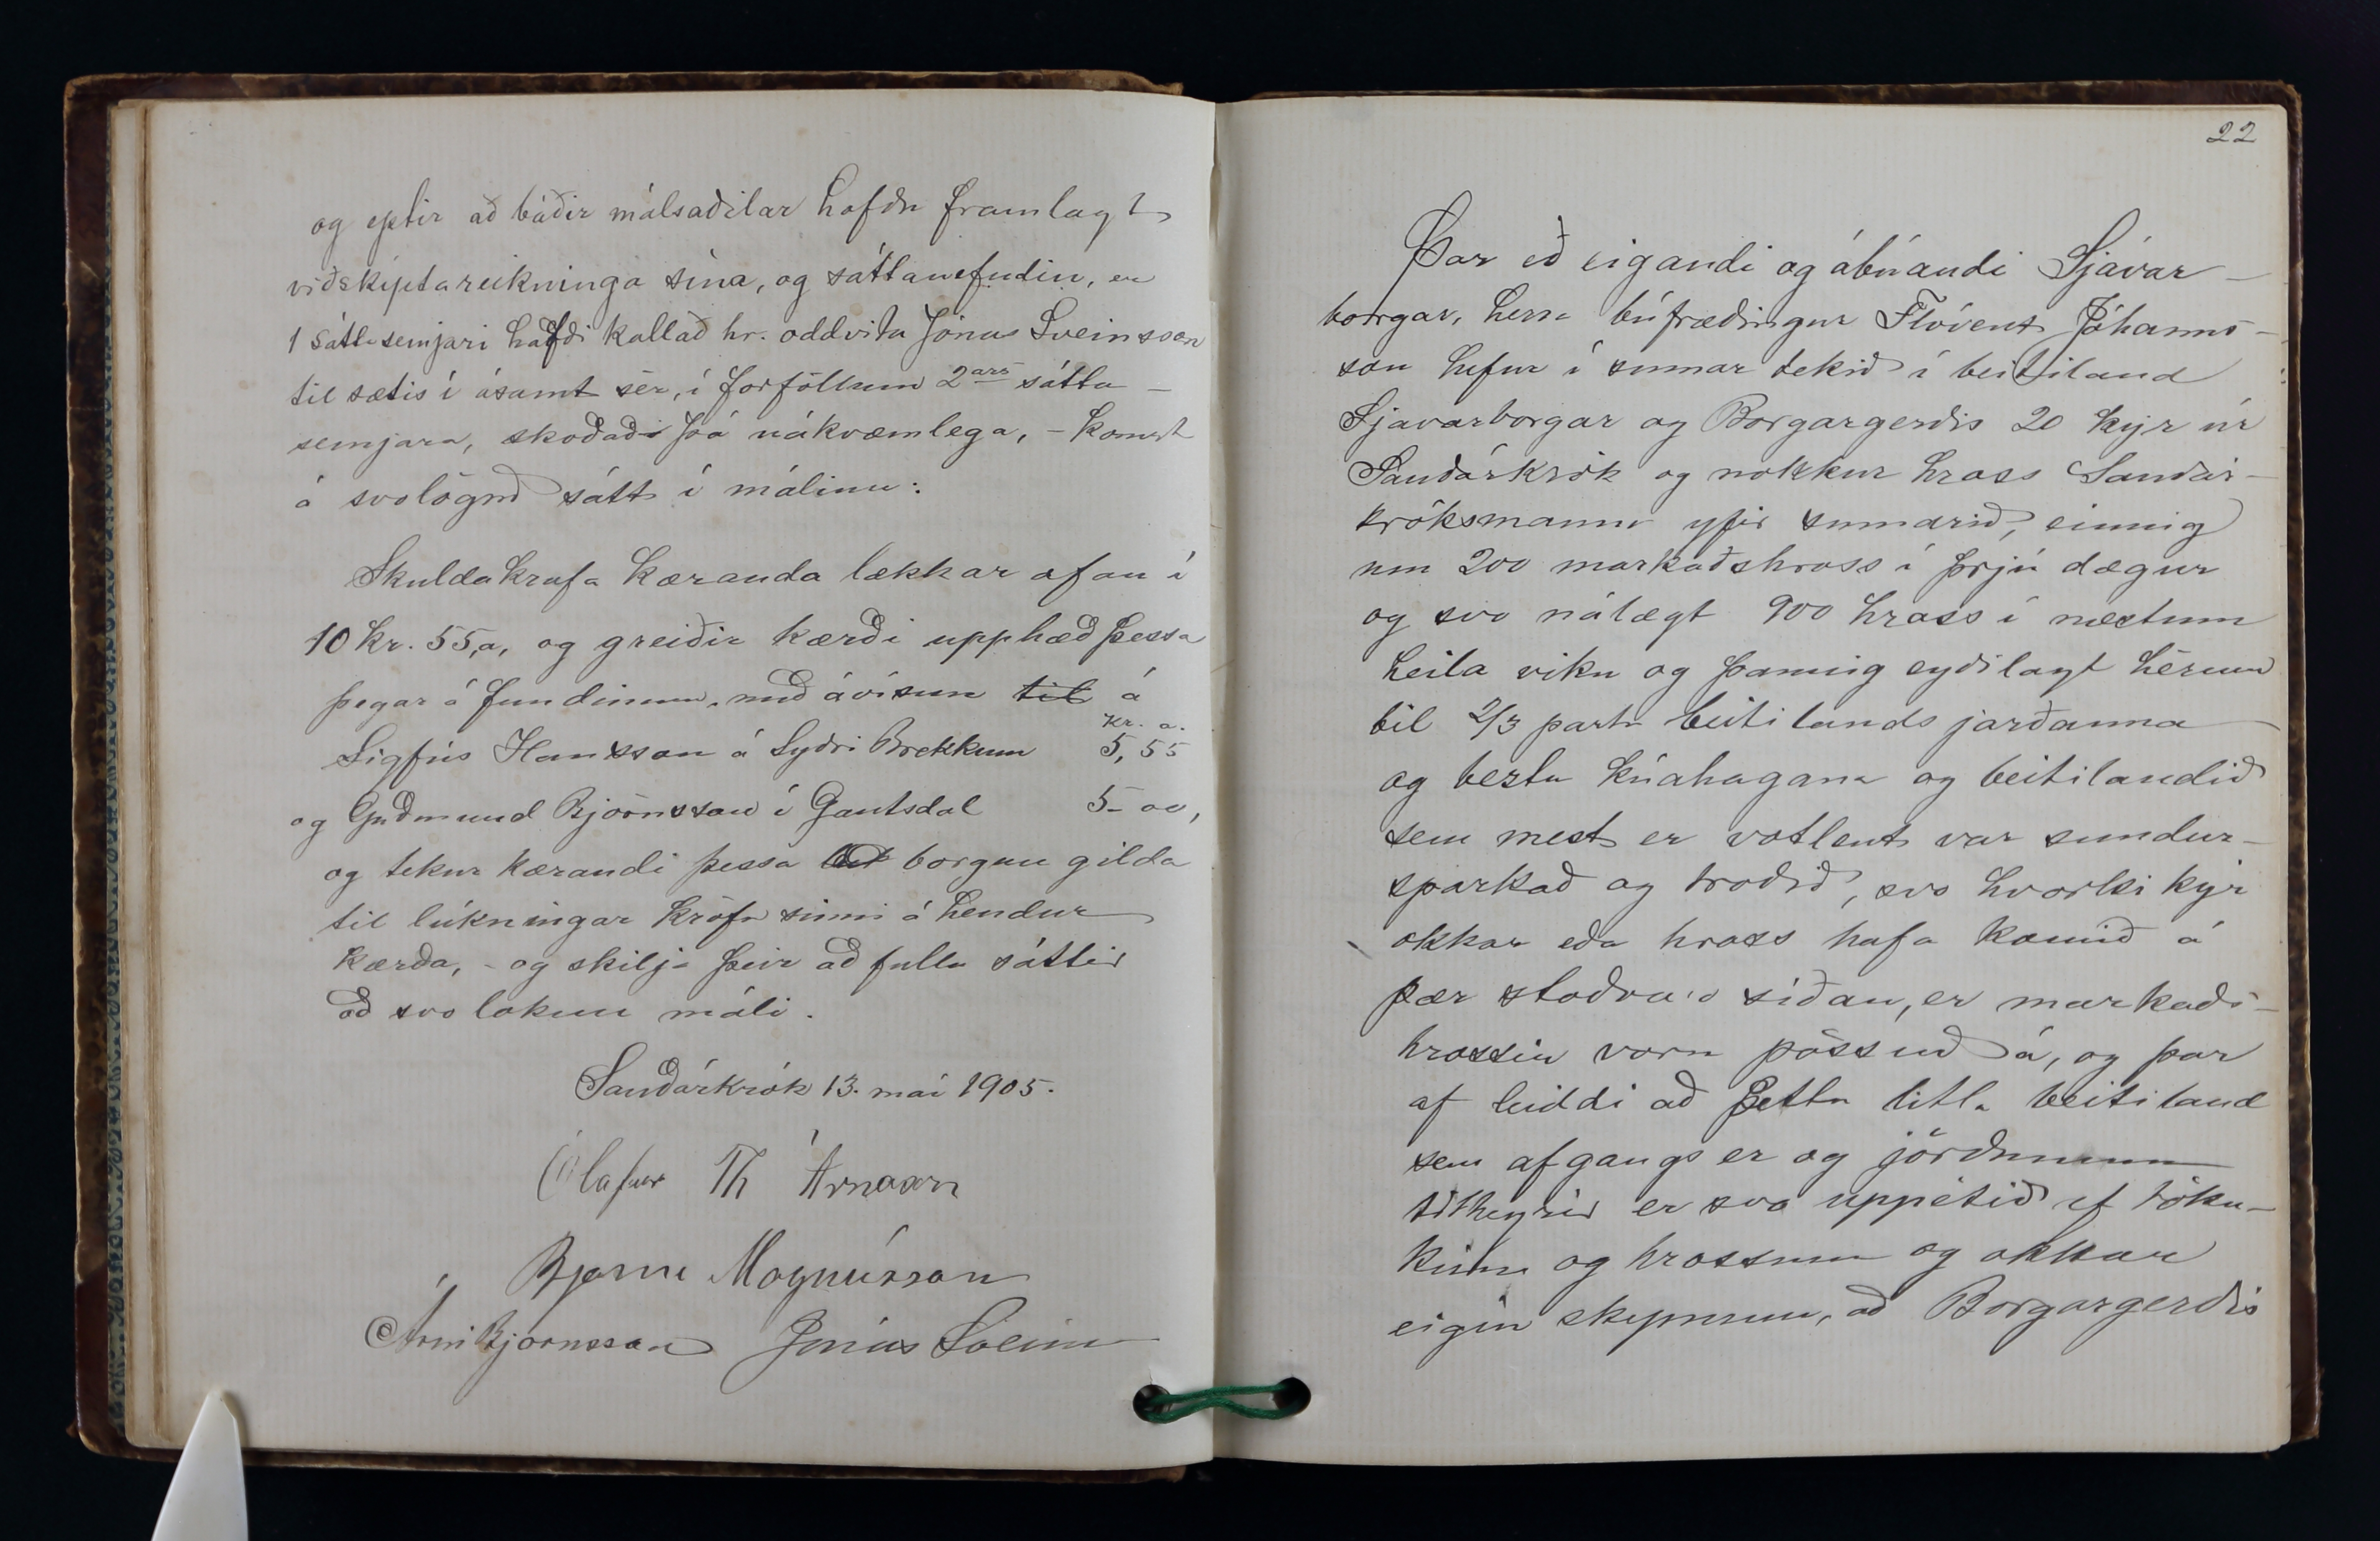 og eptir að báðir málsaðilar hafðu framlagt
viðskiptareikninga sína, og sáttanefndin, en
1 sáttasemjari hafði kallað hr. oddvita Jónas Sveinsson
til sætis í ásamt sér, í forföllum 2ars sátta-
semjara, skoðað þá nákvæmlega, - komst
á svolögnð sátt í málinu:
Skuldakrafa kæranda lækkar ofan í
10 kr. 55,a, og greiðir kærði upphæð þessa
þegar á fundinum, með ávísun til á
kr. a.
Sigfús Hansson á Syðri Brekkum 5,55
og Guðmund Björnsson í Gautsdal 5-00,
og tekur kærandi þessa borgun gilda
til lúkningar kröfu sinni á hendur
kærða, - og skilja þeir að fullu sáttir
að svo loknu máli.
Sauðárkrók 13. maí 1905.
Ólafur Th Árnason
Bjarni Magnússon
Árni Björnsson Jónas Sveins
22
Þar eð eigandi og ábúandi Sjávar-
borgar, herra búfræðingur Flóvent Jóhanns-
son hefur í sumar tekið í beitiland
Sjavarborgar og Borgargerðis 20 kýr úr
Sauðárkrók og nokkur hross Sauðár-
króksmanna yfir sumarið, einnig
um 200 markaðshross í þrjú dægur
og svo nálægt 900 hross í næstum
heila viku og þannig eyðilagt hérum
bil 2/3 parta beitilands jarðanna
og beztu kúahagana og beitilandið
sem mest er votlent var sundur-
sparkað og troðið, svo hvorki kýr
okkar eða hross hafa komið á
þær stöðvar síðan, er markaðs-
hrossin voru pössuð á, og þar
af leiddi að þetta litla beitiland
sem afgangs er og jörðunum
tilheyrir er svo uppétið af töku-
kúm og hrossum og okkar
eigin skepnum, að Borgargerðis